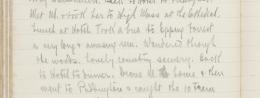 to Hotel to
Met M. & took her to High Mass at the Cathedral.
Lunch at Hotel. Took a bus to Epping Forest
a very long & amusing run. Wandered through
the woods. lovely country scenery. back
to Hotel to dinner. home & then
went to Paddington & caught the 10